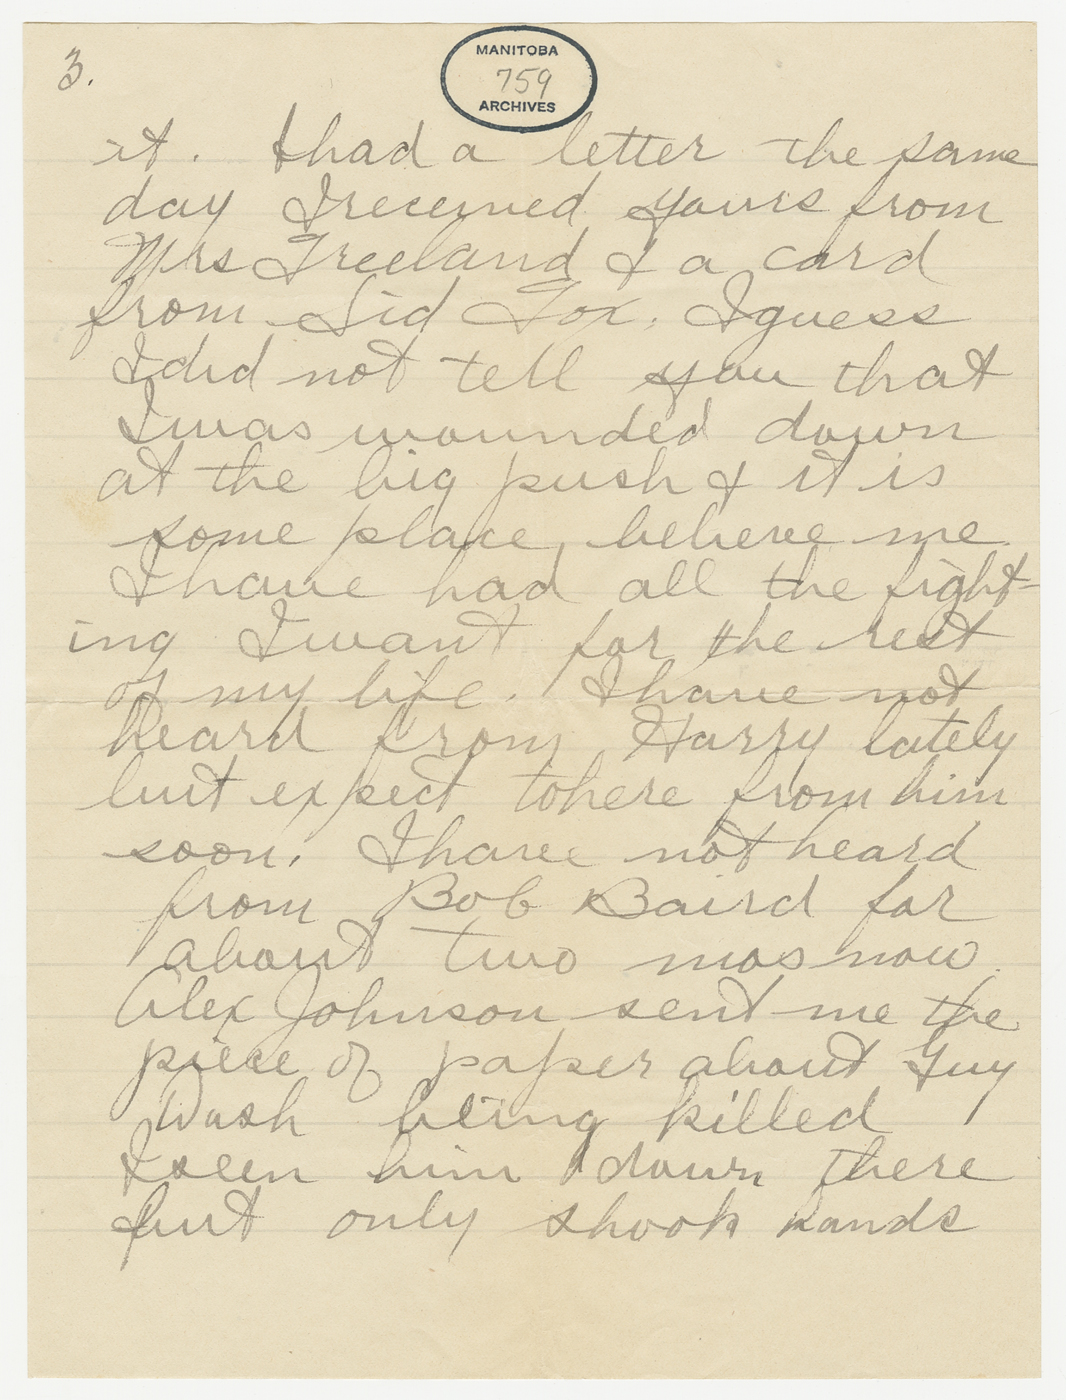 3.
MANITOBA
759
ARCHIVES
it. I had a letter the same
day I received yours from
Mrs Freeland & a card
from Sid Fox. I guess
I did not tell you that
I was wounded down
at the big push & it is
some place, believe me.
I have had all the fight-
ing I want for the rest
of my life. I have not
heard from Harry lately
but expect to here from him
soon. I have not heard
from Bob Baird for
about two mos now.
Alex Johnson sent me the
piece of paper about Guy
Wash being killed
I seen him down there
but only shook hands